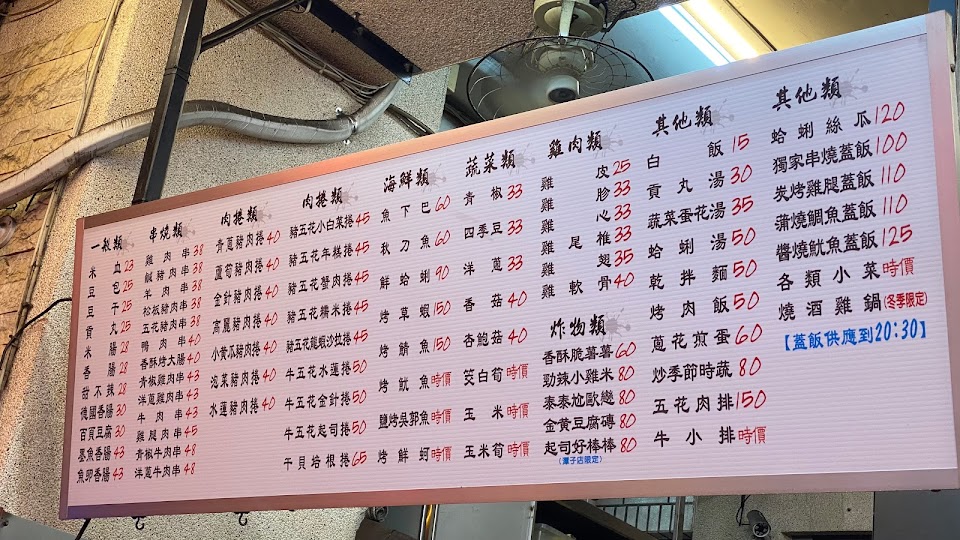 一般類
米血23
豆包25
豆干25
貢丸25
米腸28
香腸28
甜不辣28
德國香腸30
百頁豆腐30
墨魚香腸43
魚卵香腸43
串燒類
雞肉串38
鹹豬肉串38
羊肉串38
松板豬肉串38
五花豬肉串38
鴨肉串40
香酥烤大腸40
青椒雞肉串43
洋蔥雞肉串43
牛肉串43
雞腿肉串45
青椒牛肉串48
洋蔥牛肉串48
肉捲類
青蔥豬肉捲40
蘆筍豬肉捲40
金針豬肉捲40
高麗豬肉捲40
小黃瓜豬肉捲40
泡菜豬肉捲40
水蓮豬肉捲40
肉捲類
豬五花小白菜捲45
豬五花年糕捲45
豬五花蟹肉捲45
豬五花糯米捲45
豬五花龍蝦沙拉捲45
牛五花水蓮捲50
牛五花金針捲50
牛五花起司捲50
干貝培根捲65
海鮮類
魚下巴60
秋刀魚60
鮮蛤蜊90
烤草蝦150
烤鯖魚150
烤魷魚時價
鹽烤吳郭魚時價
烤鮮蚵時價
蔬菜類
青椒33
四季豆33
洋蔥33
香菇40
杏鮑菇40
筊白筍時價
玉米時價
玉米筍時價
雞肉類
雞皮25
雞胗33
雞心33
雞尾椎33
雞翅35
雞軟骨40
炸物類
香酥脆薯薯60
勁辣小雞米80
泰泰尬歐戀80
金黃豆腐磚80
起司好棒棒80
(潭子店限定)
其他類
白飯15
貢丸湯30
蔬菜蛋花湯35
蛤蜊湯50
乾拌麵50
烤肉飯50
蔥花煎蛋60
炒季節時蔬80
五花肉排150
牛小排時價
其他類
蛤蜊絲瓜120
獨家串燒蓋飯100
炭烤雞腿蓋飯110
蒲燒鯛魚蓋飯110
醬燒魷魚蓋飯125
各類小菜時價
燒酒雞鍋(冬季限定)
【蓋飯供應到20:30】